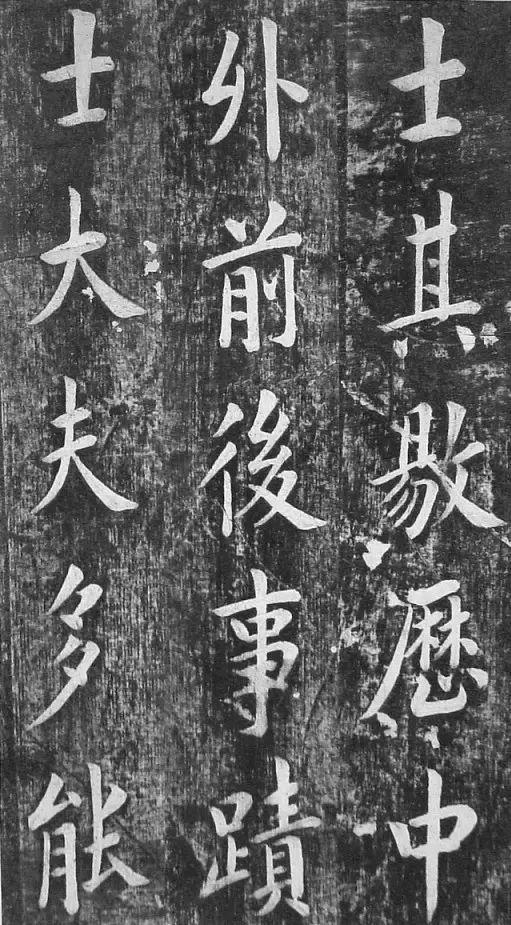 士其敭歷中
外前後事蹟
士大夫多能